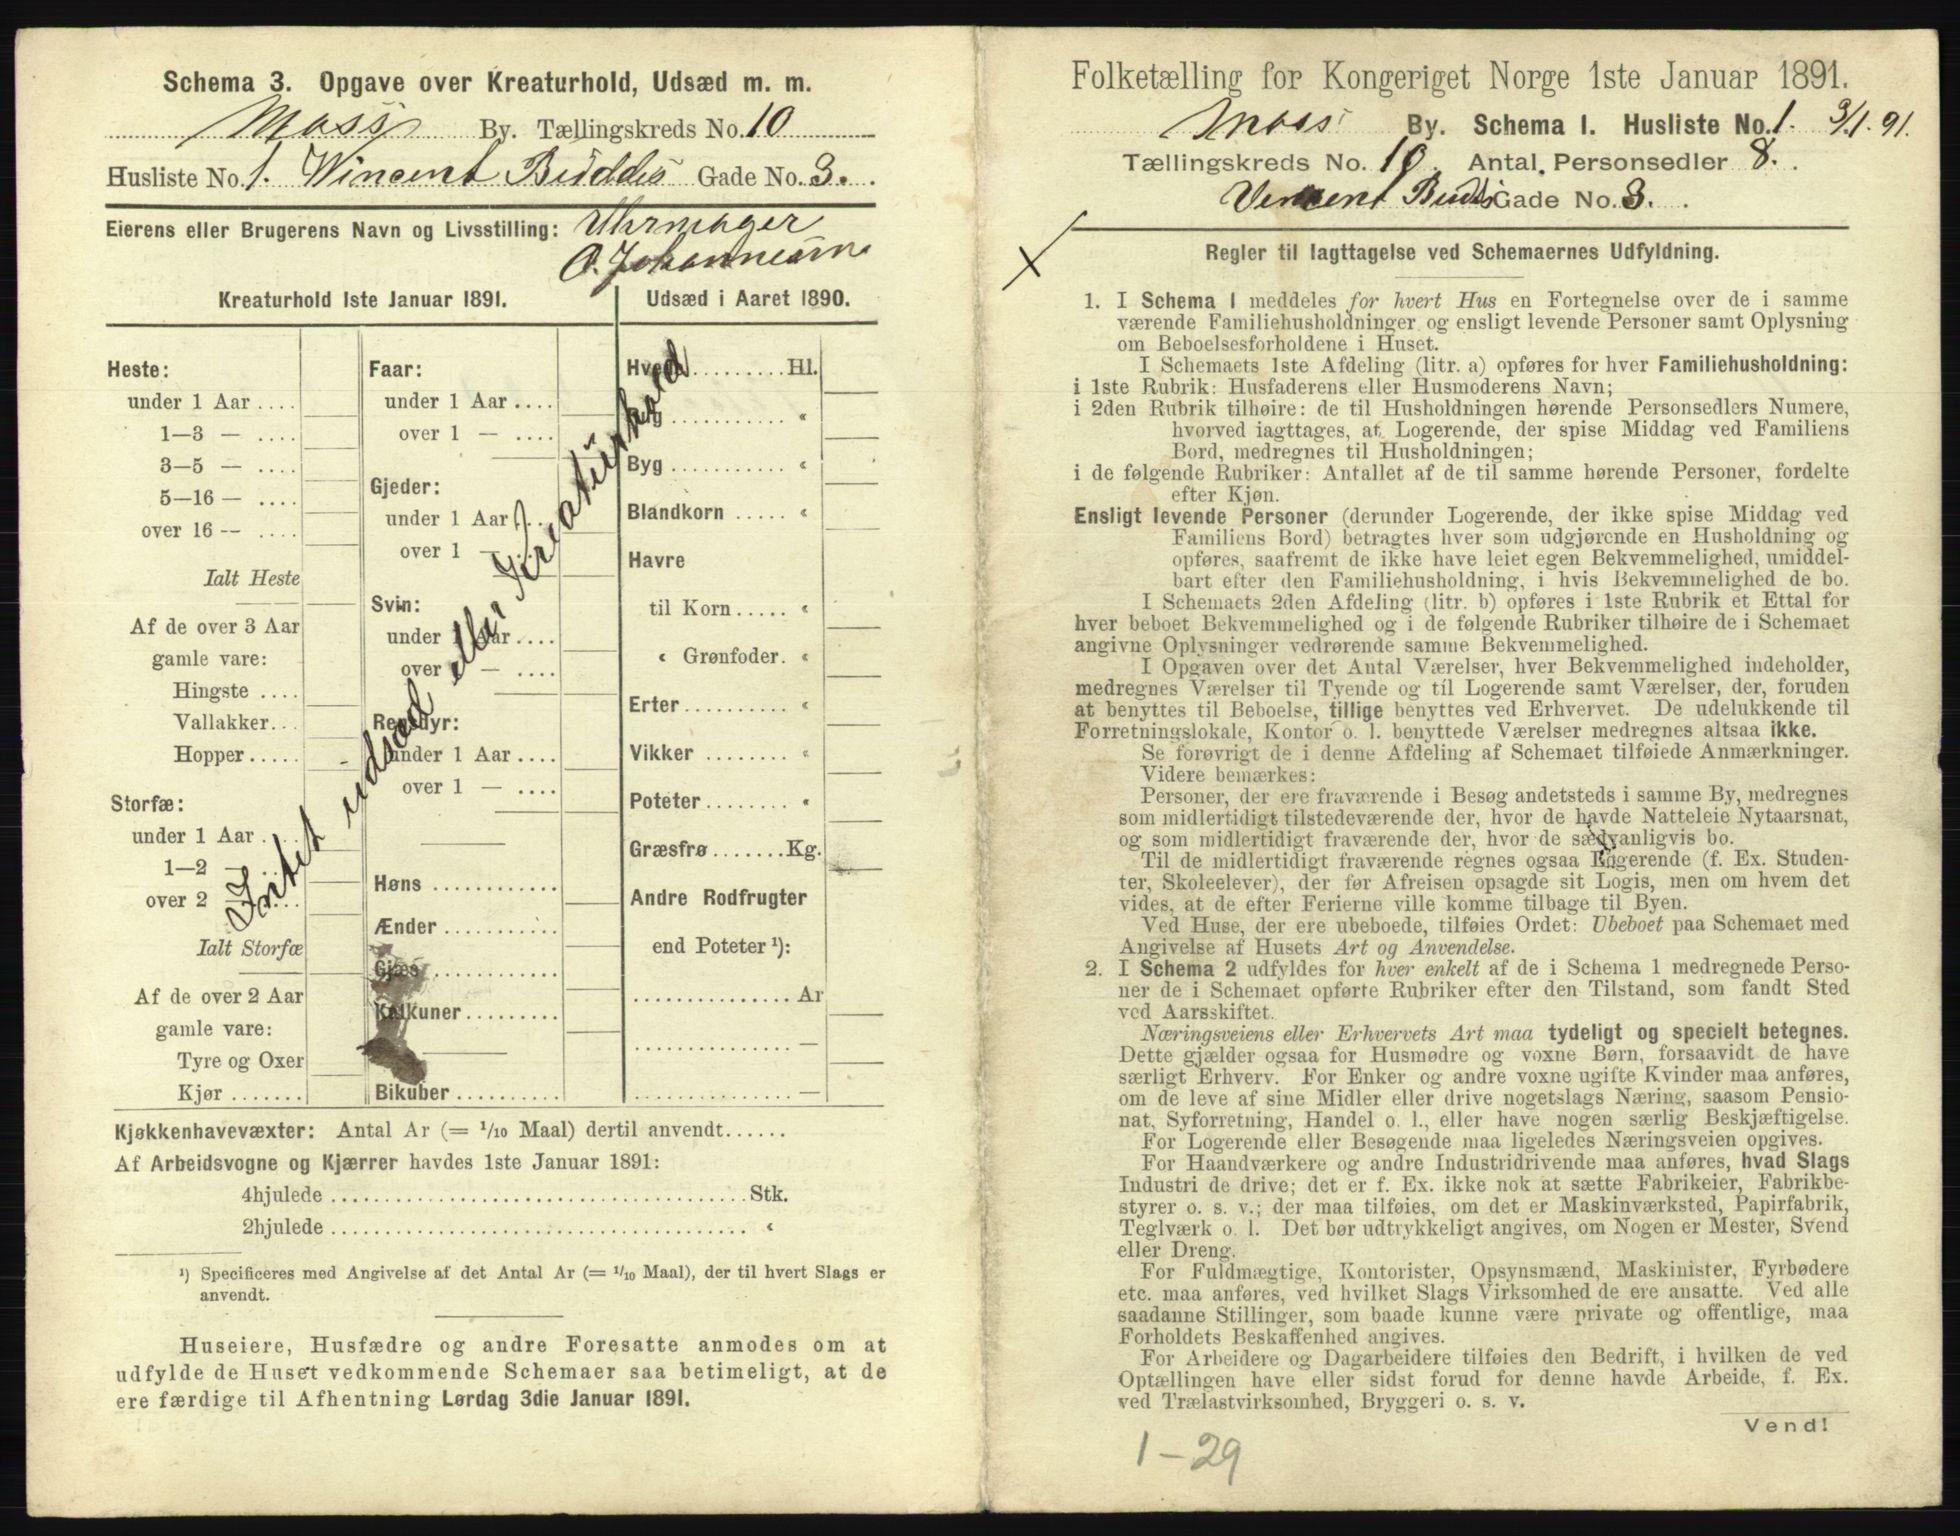 Schema 3. Opgave over Kreaturhold, Udsæd m. m.
Moss By. Tællingskreds No. 10
Husliste No. 1. Wincent Buddes Gade No. 3.
Eierens eller Brugerens Navn og Livsstilling: Uhrmager
O. Johannesen
Kreaturhold 1ste Januar 1891.
Heste:
under 1 Aar ....
1—3 — ....
3—5 — ....
5—16 — ....
over 16 -- ....
Ialt Heste
Af de over 3 Aar
gamle vare:
Hingste ....
Vallakker...
Hopper..... -
Storfæ:
under 1 Aar ....
1—2 — ....
over 2 — ....
Ialt Storfæ
Af de over 2 Aar
gamle vare:
Tyre og Oxer
Kjør .......
Faar:
under 1 Aar ....
over 1 — ....
Gjeder:
under 1 Aar ....
over 1 — ....
Svin:
under 1 Aar ....
over 1 — ....
Rensdyr:
under 1 Aar ....
over 1 — ....
Høns ............
Ænder ............
Gjæs ............
Kalkuner.........
Bikuber ..........
Udsæd i Aaret 1890.
Hvede.........Hl.
Rug ........... «
Byg ........... «
Blandkorn ..... «
Havre
til Korn ..... «
« Grønfoder. «
Erter.......... «
Vikker ........ «
Poteter........ «
Græsfrø .......Kg.
Andre Rodfrugter
end Poteter ¹):
............... Ar
............... —
............... —
Intet udsæd eller Kreaturhold
Kjøkkenhavevæxter: Antal Ar (= 1/10 Maal) dertil anvendt......
Af Arbeidsvogne og Kjærrer havdes 1ste Januar 1891:
4hjulede ........................................ Stk.
2hjulede ........................................ «
¹) Specificeres med Angivelse af det Antal Ar (= 1/10 Maal), der til hvert Slags er
anvendt.
Huseiere, Husfædre og andre Foresatte anmodes om at
udfylde de Huset vedkommende Schemaer saa betimeligt, at de
ere færdige til Afhentning Lørdag 3die Januar 1891.
Folketælling for Kongeriget Norge 1ste Januar 1891.
Moss By. Schema I. Husliste No. 1. 3/1. 91.
Tællingskreds No. 10. Antal Personsedler 8.
Vincent Budds Gade No. 3.
Regler til Iagttagelse ved Schemaernes Udfyldning.
1. I Schema I meddeles for hvert Hus en Fortegnelse over de i samme
værende Familiehusholdninger og ensligt levende Personer samt Oplysning
om Beboelsesforholdene i Huset.
I Schemaets 1ste Afdeling (litr. a) opføres for hver Familiehusholdning:
i 1ste Rubrik: Husfaderens eller Husmoderens Navn;
i 2den Rubrik tilhøire: de til Husholdningen hørende Personsedlers Numere,
hvorved iagttages, at Logerende, der spise Middag ved Familiens
Bord, medregnes til Husholdningen;
i de følgende Rubriker: Antallet af de til samme hørende Personer, fordelte
efter Kjøn.
Ensligt levende Personer (derunder Logerende, der ikke spise Middag ved
Familiens Bord) betragtes hver som udgjørende en Husholdning og
opføres, saafremt de ikke have leiet egen Bekvemmelighed, umiddel-
bart efter den Familiehusholdning, i hvis Bekvemmelighed de bo.
I Schemaets 2den Afdeling (litr. b) opføres i 1ste Rubrik et Ettal for
hver beboet Bekvemmelighed og i de følgende Rubriker tilhøire de i Schemaet
angivne Oplysninger vedrørende samme Bekvemmelighed.
I Opgaven over det Antal Værelser, hver Bekvemmelighed indeholder,
medregnes Værelser til Tyende og til Logerende samt Værelser, der, foruden
at benyttes til Beboelse, tillige benyttes ved Erhvervet. De udelukkende til
Forretningslokale, Kontor o. l. benyttede Værelser medregnes altsaa ikke.
Se forøvrigt de i denne Afdeling af Schemaet tilføiede Anmærkninger.
Videre bemærkes:
Personer, der ere fraværende i Besøg andetsteds i samme By, medregnes
som midlertidigt tilstedeværende der, hvor de havde Natteleie Nytaarsnat,
og som midlertidigt fraværende der, hvor de sædvanligvis bo.
Til de midlertidigt fraværende regnes ogsaa Logerende (f. Ex. Studen-
ter, Skoleelever), der før Afreisen opsagde sit Logis, men om hvem det
vides, at de efter Ferierne ville komme tilbage til Byen.
Ved Huse, der ere ubeboede, tilføies Ordet: Ubeboet paa Schemaet med
Angivelse af Husets Art og Anvendelse.
2. I Schema 2 udfyldes for hver enkelt af de i Schema 1 medregnede Perso-
ner de i Schemaet opførte Rubriker efter den Tilstand, som fandt Sted
ved Aarsskiftet.
Næringsveiens eller Erhvervets Art maa tydeligt og specielt betegnes.
Dette gjælder ogsaa for Husmødre og voxne Børn, forsaavidt de have
særligt Erhverv. For Enker og andre voxne ugifte Kvinder maa anføres,
om de leve af sine Midler eller drive nogetslags Næring, saasom Pensio-
nat, Syforretning, Handel o. l., eller have nogen særlig Beskjæftigelse.
For Logerende eller Besøgende maa ligeledes Næringsveien opgives.
For Haandværkere og andre Industridrivende maa anføres, hvad Slags
Industri de drive; det er f. Ex. ikke nok at sætte Fabrikeier, Fabrikbe-
styrer o. s. v.; der maa tilføies, om det er Maskinværksted, Papirfabrik,
Teglværk o. l. Det bør udtrykkeligt angives, om Nogen er Mester, Svend
eller Dreng.
For Fuldmægtige, Kontorister, Opsynsmænd, Maskinister, Fyrbødere
etc. maa anføres, ved hvilket Slags Virksomhed de ere ansatte. Ved alle
saadanne Stillinger, som baade kunne være private og offentlige, maa
Forholdets Beskaffenhed angives.
For Arbeidere og Dagarbeidere tilføies den Bedrift, i hvilken de ved
Optællingen have eller sidst forud for denne havde Arbeide, f. Ex.
ved Trælastvirksomhed, Bryggeri o. s. v.
Vend!
1–29